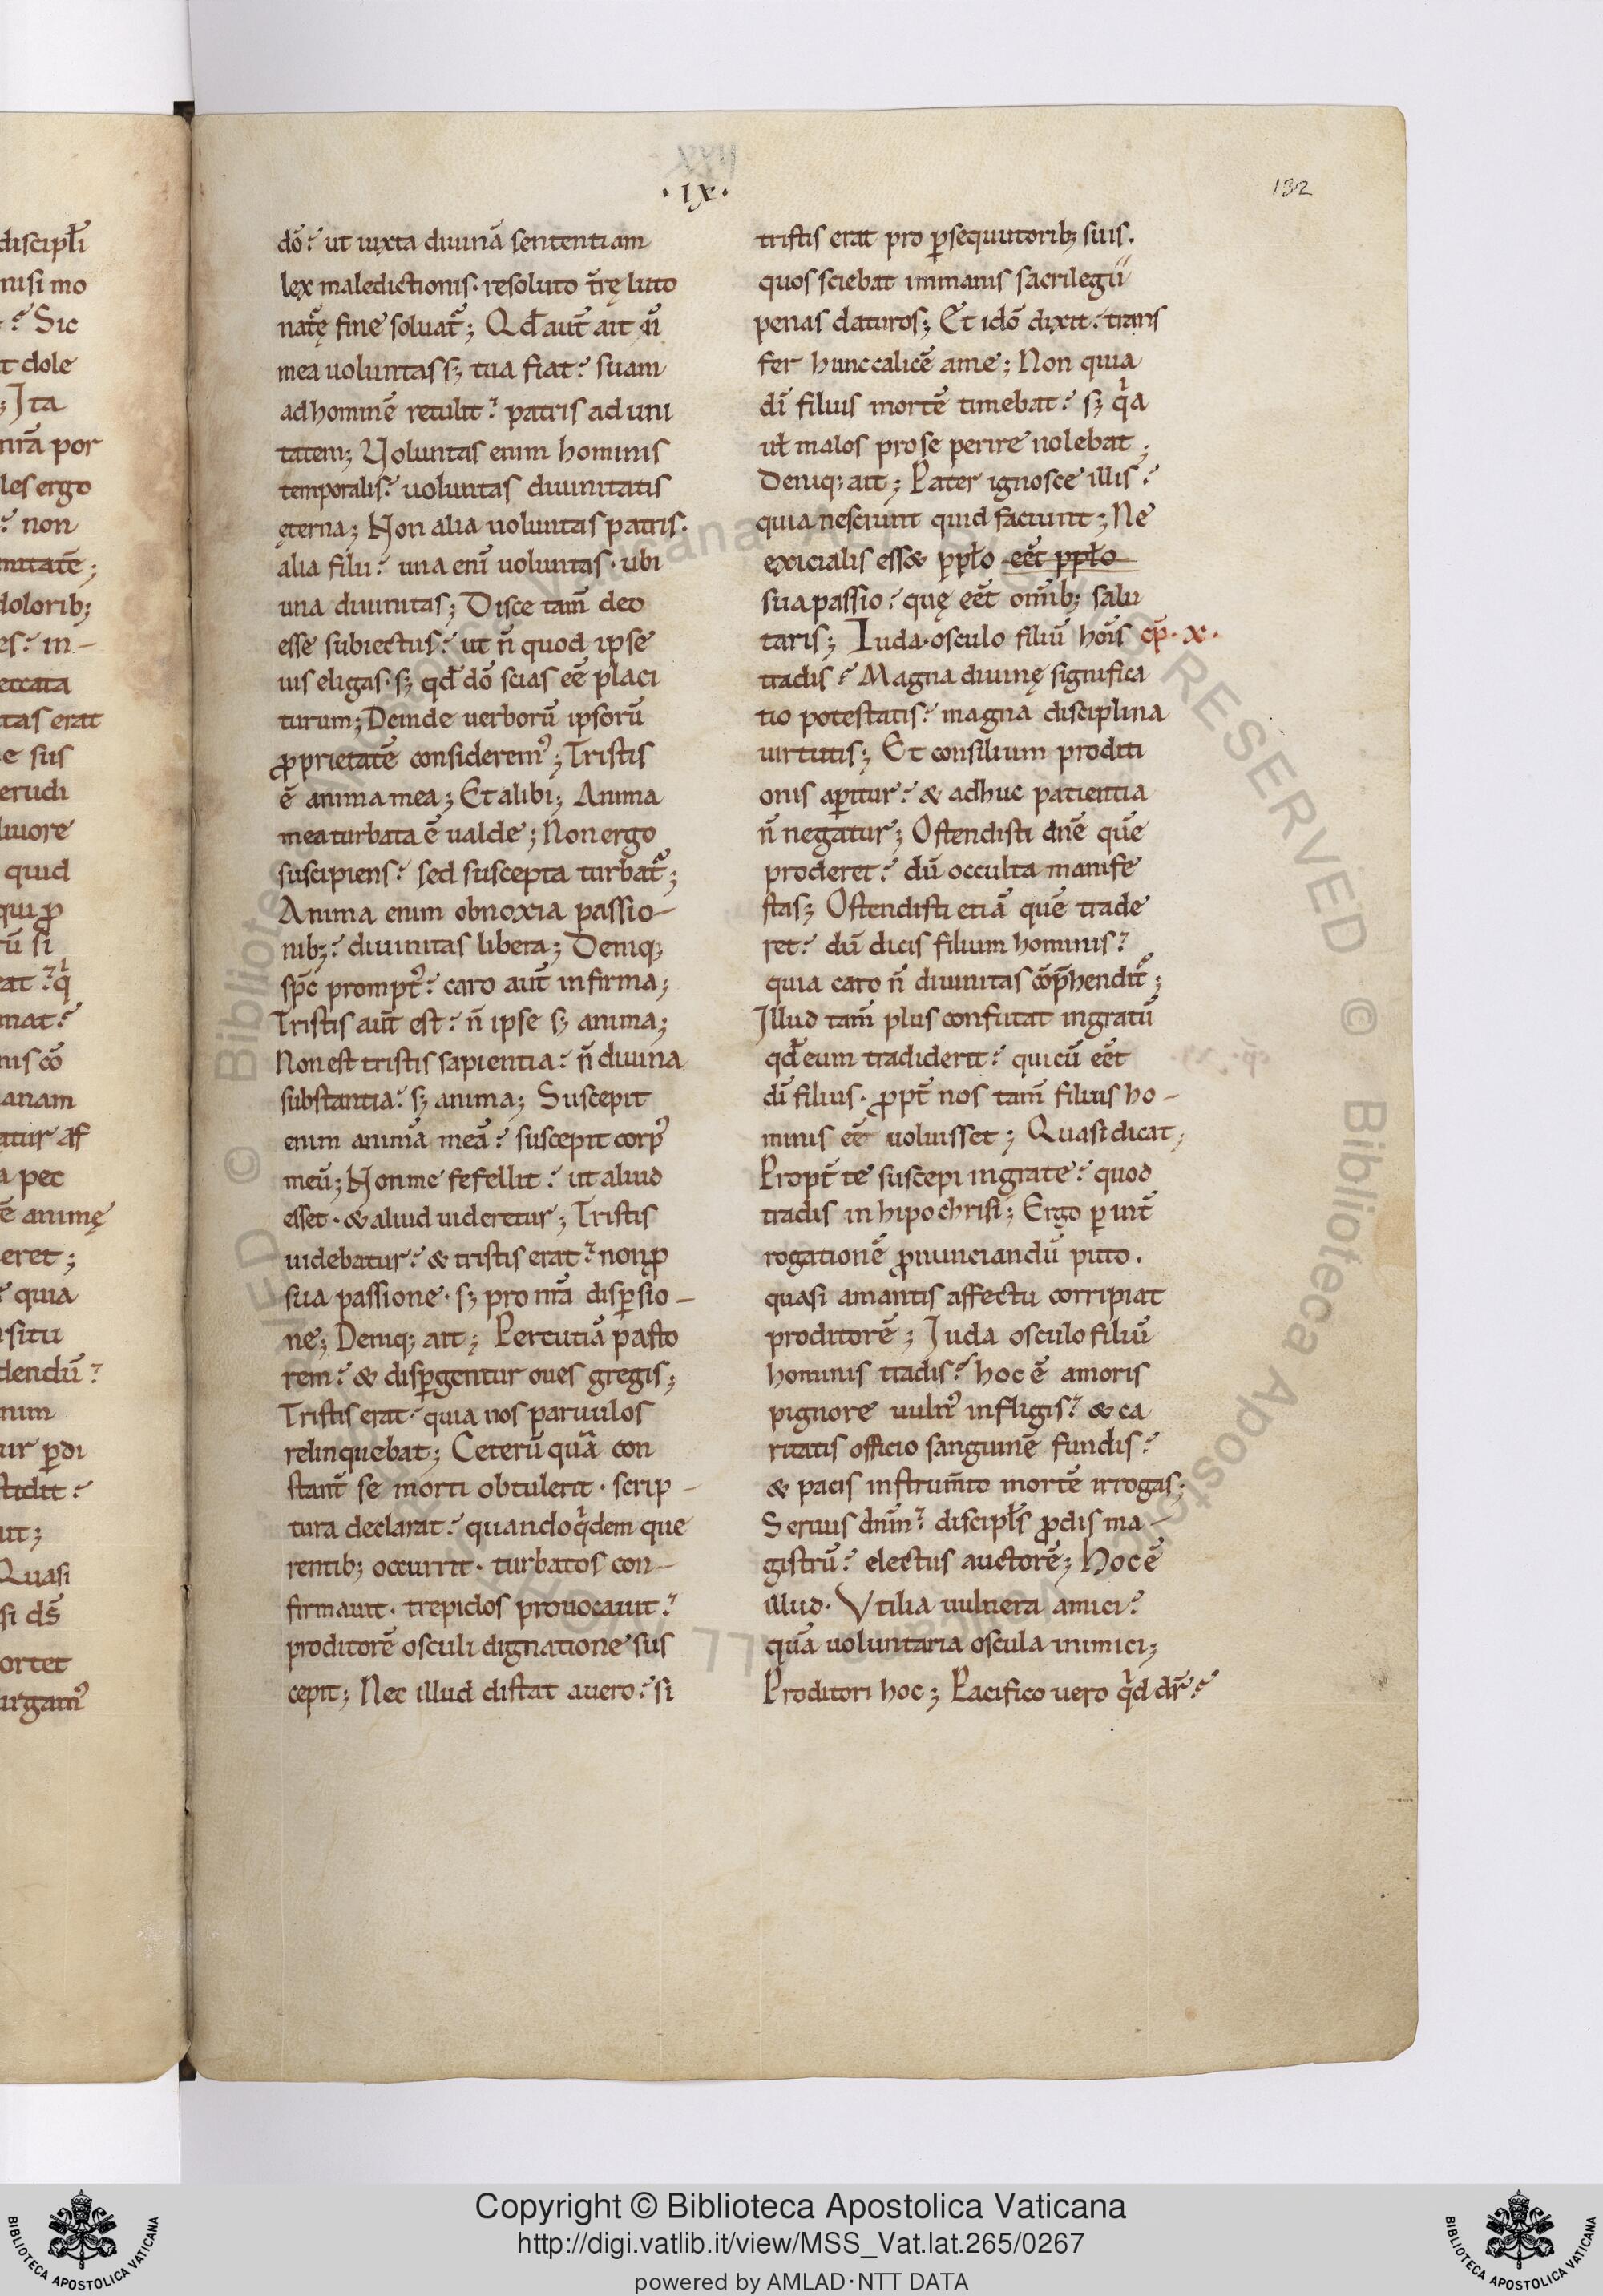 XXII
·ıx·
132
discipłi
nisi mo
·? Sic
t dole
; Ita
nrā por
les ergo
? non
nitatē;
dolorib;
es? in-
eccata
tas erat
e sus
erudi
liuore
quid
qui ꝓ
rū si
at? qⁱ
nat?
nis cō
anam
atur af
a pec
ē animę
eret;
? quia
situ
dendū?
num
ur ꝑdi
stidit?
ut;
Quasi
si dS̄
ortet
urgam᾽
dō? ut iuxta diuinā sententiam
lex maledictionis· resoluto t̄rę luto
nat᷑ę fine soluat᷑; Qđ aut̄ ait n̄
mea uoluntas sꝫ tua fiat? suam
ad hominē retulit? patris ad uni
tatem; Uoluntas enim hominis
temporalis? uoluntas diuinitatis
ęterna; Non alia uoluntas patris·
alia filii? una enī uoluntas· ubi
una diuinitas; Disce tam̄ deo
esse subiectus? ut n̄ quod ipse
uis eligas· sꝫ qđ dō scias eē placi
turum; Deinde uerborū ipsorū
ꝓprietatē considerem᾽; Tristis
ē anima mea; Et alibi; Anima
mea turbata ē ualde; Non ergo
suscipiens? sed suscepta turbat᷑;
Anima enim obnoxia passio-
nibꝫ? diuinitas libera; Deniq;
sp̄c prompt᾽? caro aut̄ infirma;
Tristis aut̄ est? n̄ ipse sꝫ anima;
Non est tristis sapientia? n̄ diuina
substantia? sꝫ anima; Suscepit
enim animā meā? suscepit corp᾽
meū; Non me fefellit? ut aliud
esset· & aliud uideretur; Tristis
uidebatur? & tristis erat? non ꝓ
sua passione· sꝫ pro nrā disꝑsio-
ne; Deniq; ait; Percutiā pasto
rem? & disꝑgentur oues gregis;
Tristis erat? quia nos paruulos
relinquebat; Ceterū quā con
stant̄ se morti obtulerit· scrip-
tura declarat? quandoqⁱdem que
rentibꝫ occurrit· turbatos con-
firmauit· trepidos prouocauit?
proditorē osculi dignatione sus
cepit; Nec illud distat a uero? si
tristis erat pro ꝑsequutoribꝫ suis.
quos sciebat immanis sacrilegii
penas daturos; Et idō dixit? trans
fer hunc calicē a me; Non quia
dī filius mortē timebat? sꝫ qⁱa
uł malos pro se perire nolebat;
Deniq; ait; Pater ignosce illis?
quia nesciunt quid faciunt; Ne
exicialis ess& ꝑpło eēt ꝑpło
sua passio? quę eēt om̄ibꝫ salu
taris; Iuda· osculo filiū hoīs cp̄· x·
tradis? Magna diuinę significa
tio potestatis? magna disciplina
uirtutis; Et consilium proditi
onis aꝑitur? & adhuc patientia
n̄ negatur; Ostendisti dn̄e quē
proderet? dū occulta manife
stas; Ostendisti etiā quē trade
ret? dū dicis filium hominis?
quia caro n̄ diuinitas cōp̄hendit᷑;
Illud tam̄ plus confutat ingratū
qđ eum tradiderit? qui cū eēt
dī filius· ꝓpt̄ nos tam̄ filius ho-
minis eē uoluisset; Quasi dicat;
Propt̄ te suscepi ingrate? quod
tradis in hipochrisi; Ergo ꝑ int̄
rogationē ꝓnunciandū puto.
quasi amantis affectu corripiat
proditorē; Iuda osculo filiū
hominis tradis? hoc ē amoris
pignore uuln᾽ infligis? & ca
ritatis officio sanguinē fundis?
& pacis instrum̄to mortē irrogas;
Seruus dn̄m? discipłs ꝓdis ma-
gistrū? electus auctorē; Hoc ē
illud. Vtilia uulnera amici?
quā uoluntaria oscula inimici;
Proditori hoc; Pacifico uero qⁱd dr̄?
Copyright © Biblioteca Apostolica Vaticana
http://digi.vatlib.it/view/MSS_Vat.lat.265/0267
powered by AMLAD·NTT DATA
BIBLIOTECA APOSTOLICA VATICANA
BIBLIOTECA APOSTOLICA VATICANA